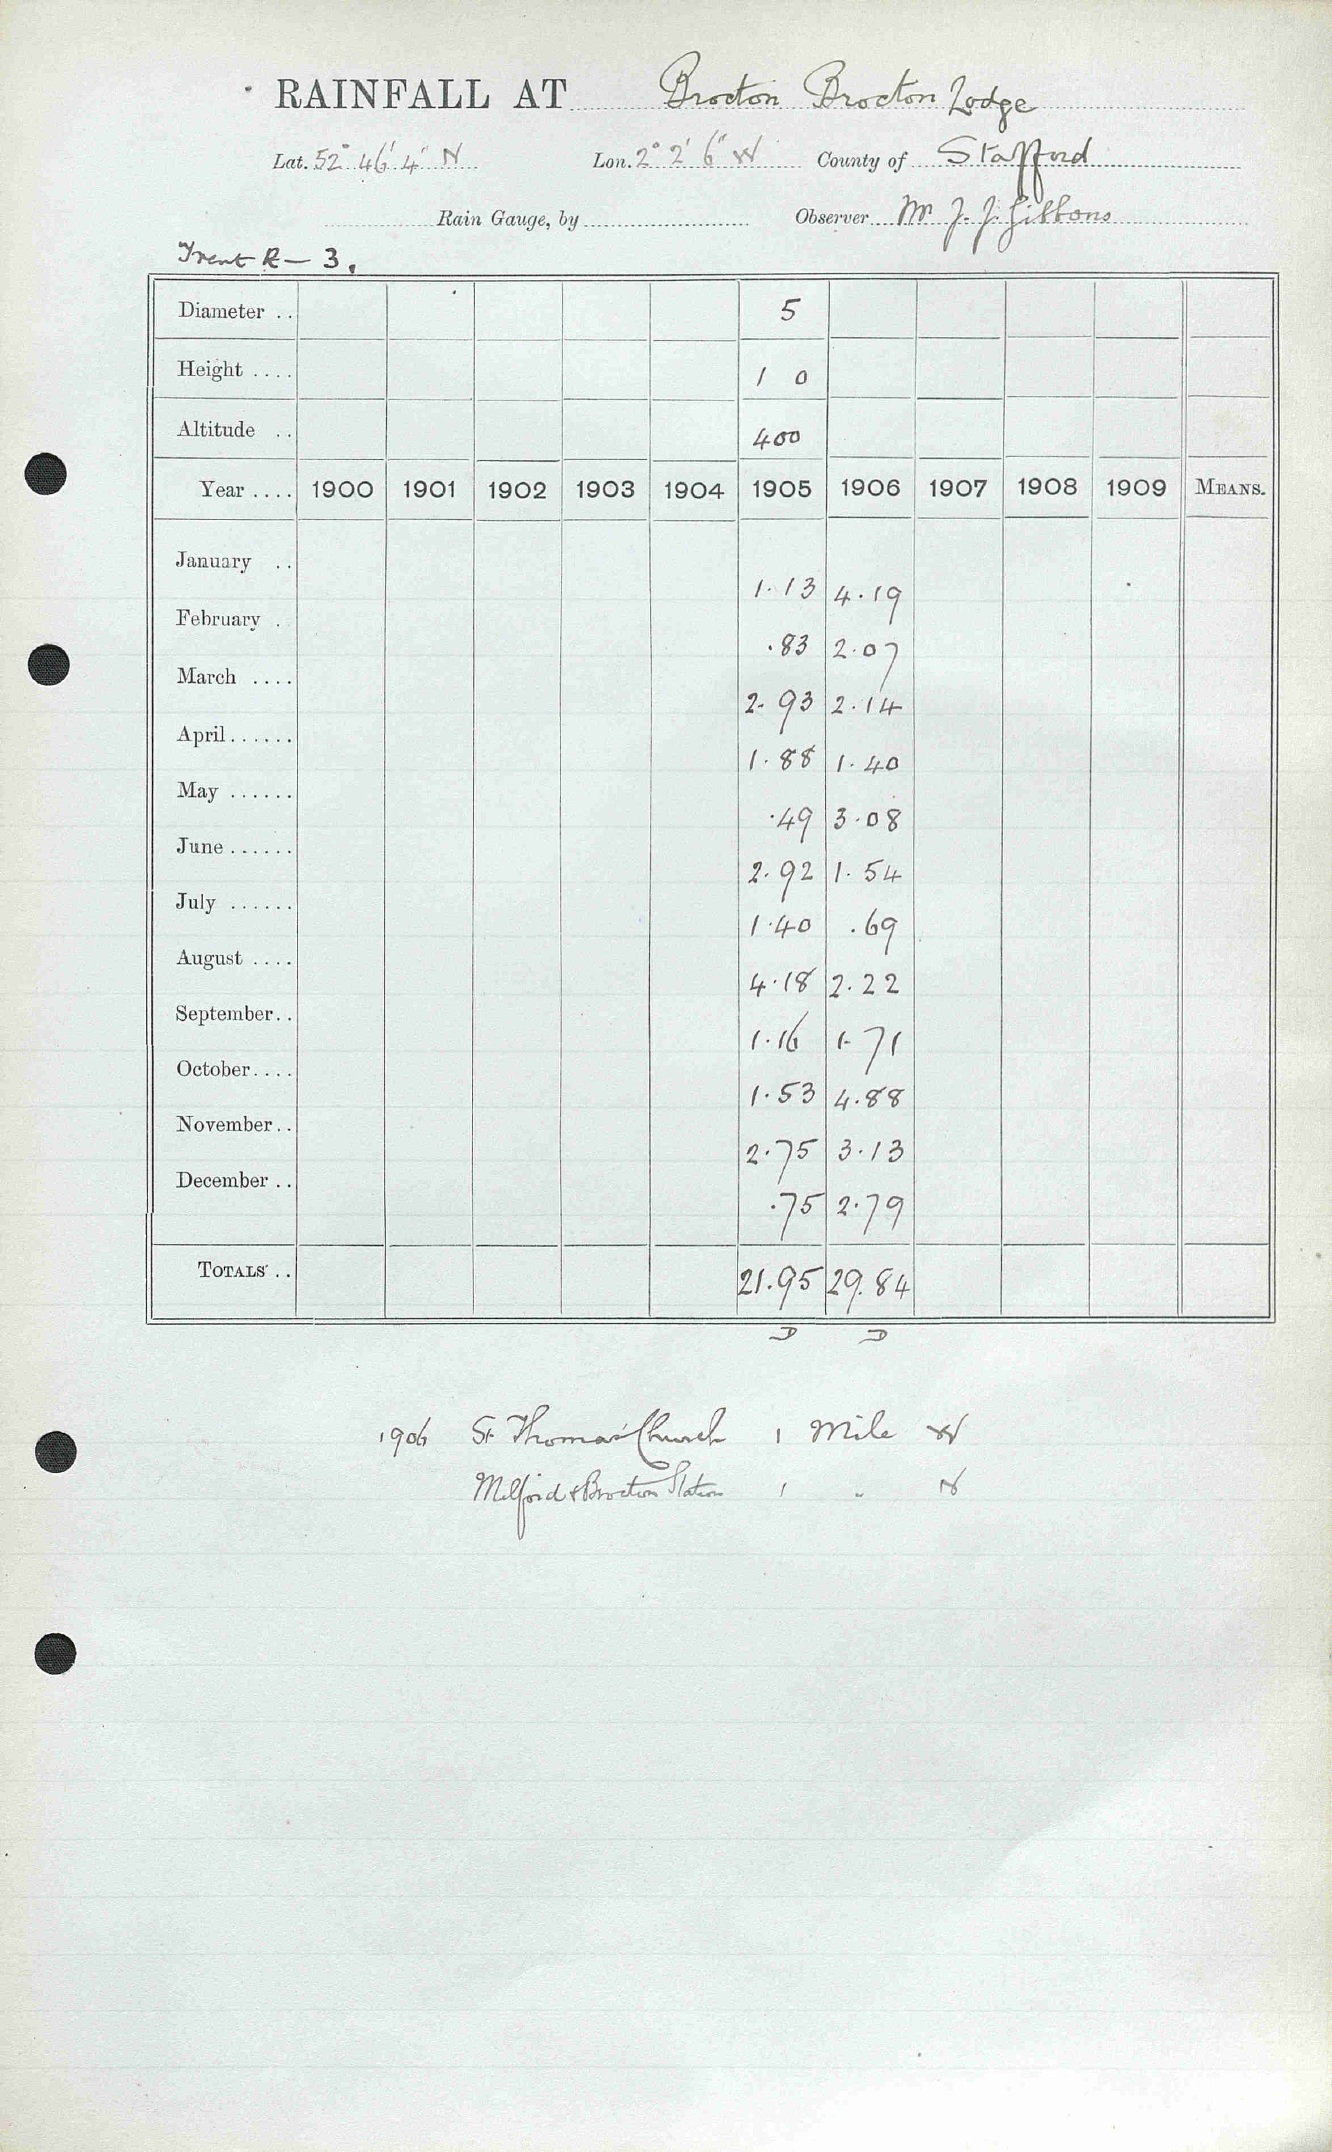 RAINFALL AT Brocton Brocton Lodge
Lat. 52° 46' 4" N Lon. 2° 2' 6" W County of Stafford
Rain Gauge, by Observer Mr J. J. Gibbons
Trent R — 3.
Diameter .. 5
Height .... 1 0
Altitude .. 400
Year .... 1900 1901 1902 1903 1904 1905 1906 1907 1908 1909 MEANS.
January .. 1.13 4.19
February . .83 2.07
March .... 2.93 2.14
April...... 1.88 1.40
May ...... .49 3.08
June...... 2.92 1.54
July ...... 1.40 .69
August .... 4.18 2.22
September.. 1.16 1.71
October.... 1.53 4.88
November.. 2.75 3.13
December .. .75 2.79
TOTALS .. 21.95 29.84
D D
1906 St Thomas' Church 1 Mile W
Milford & Brocton Station 1 " N